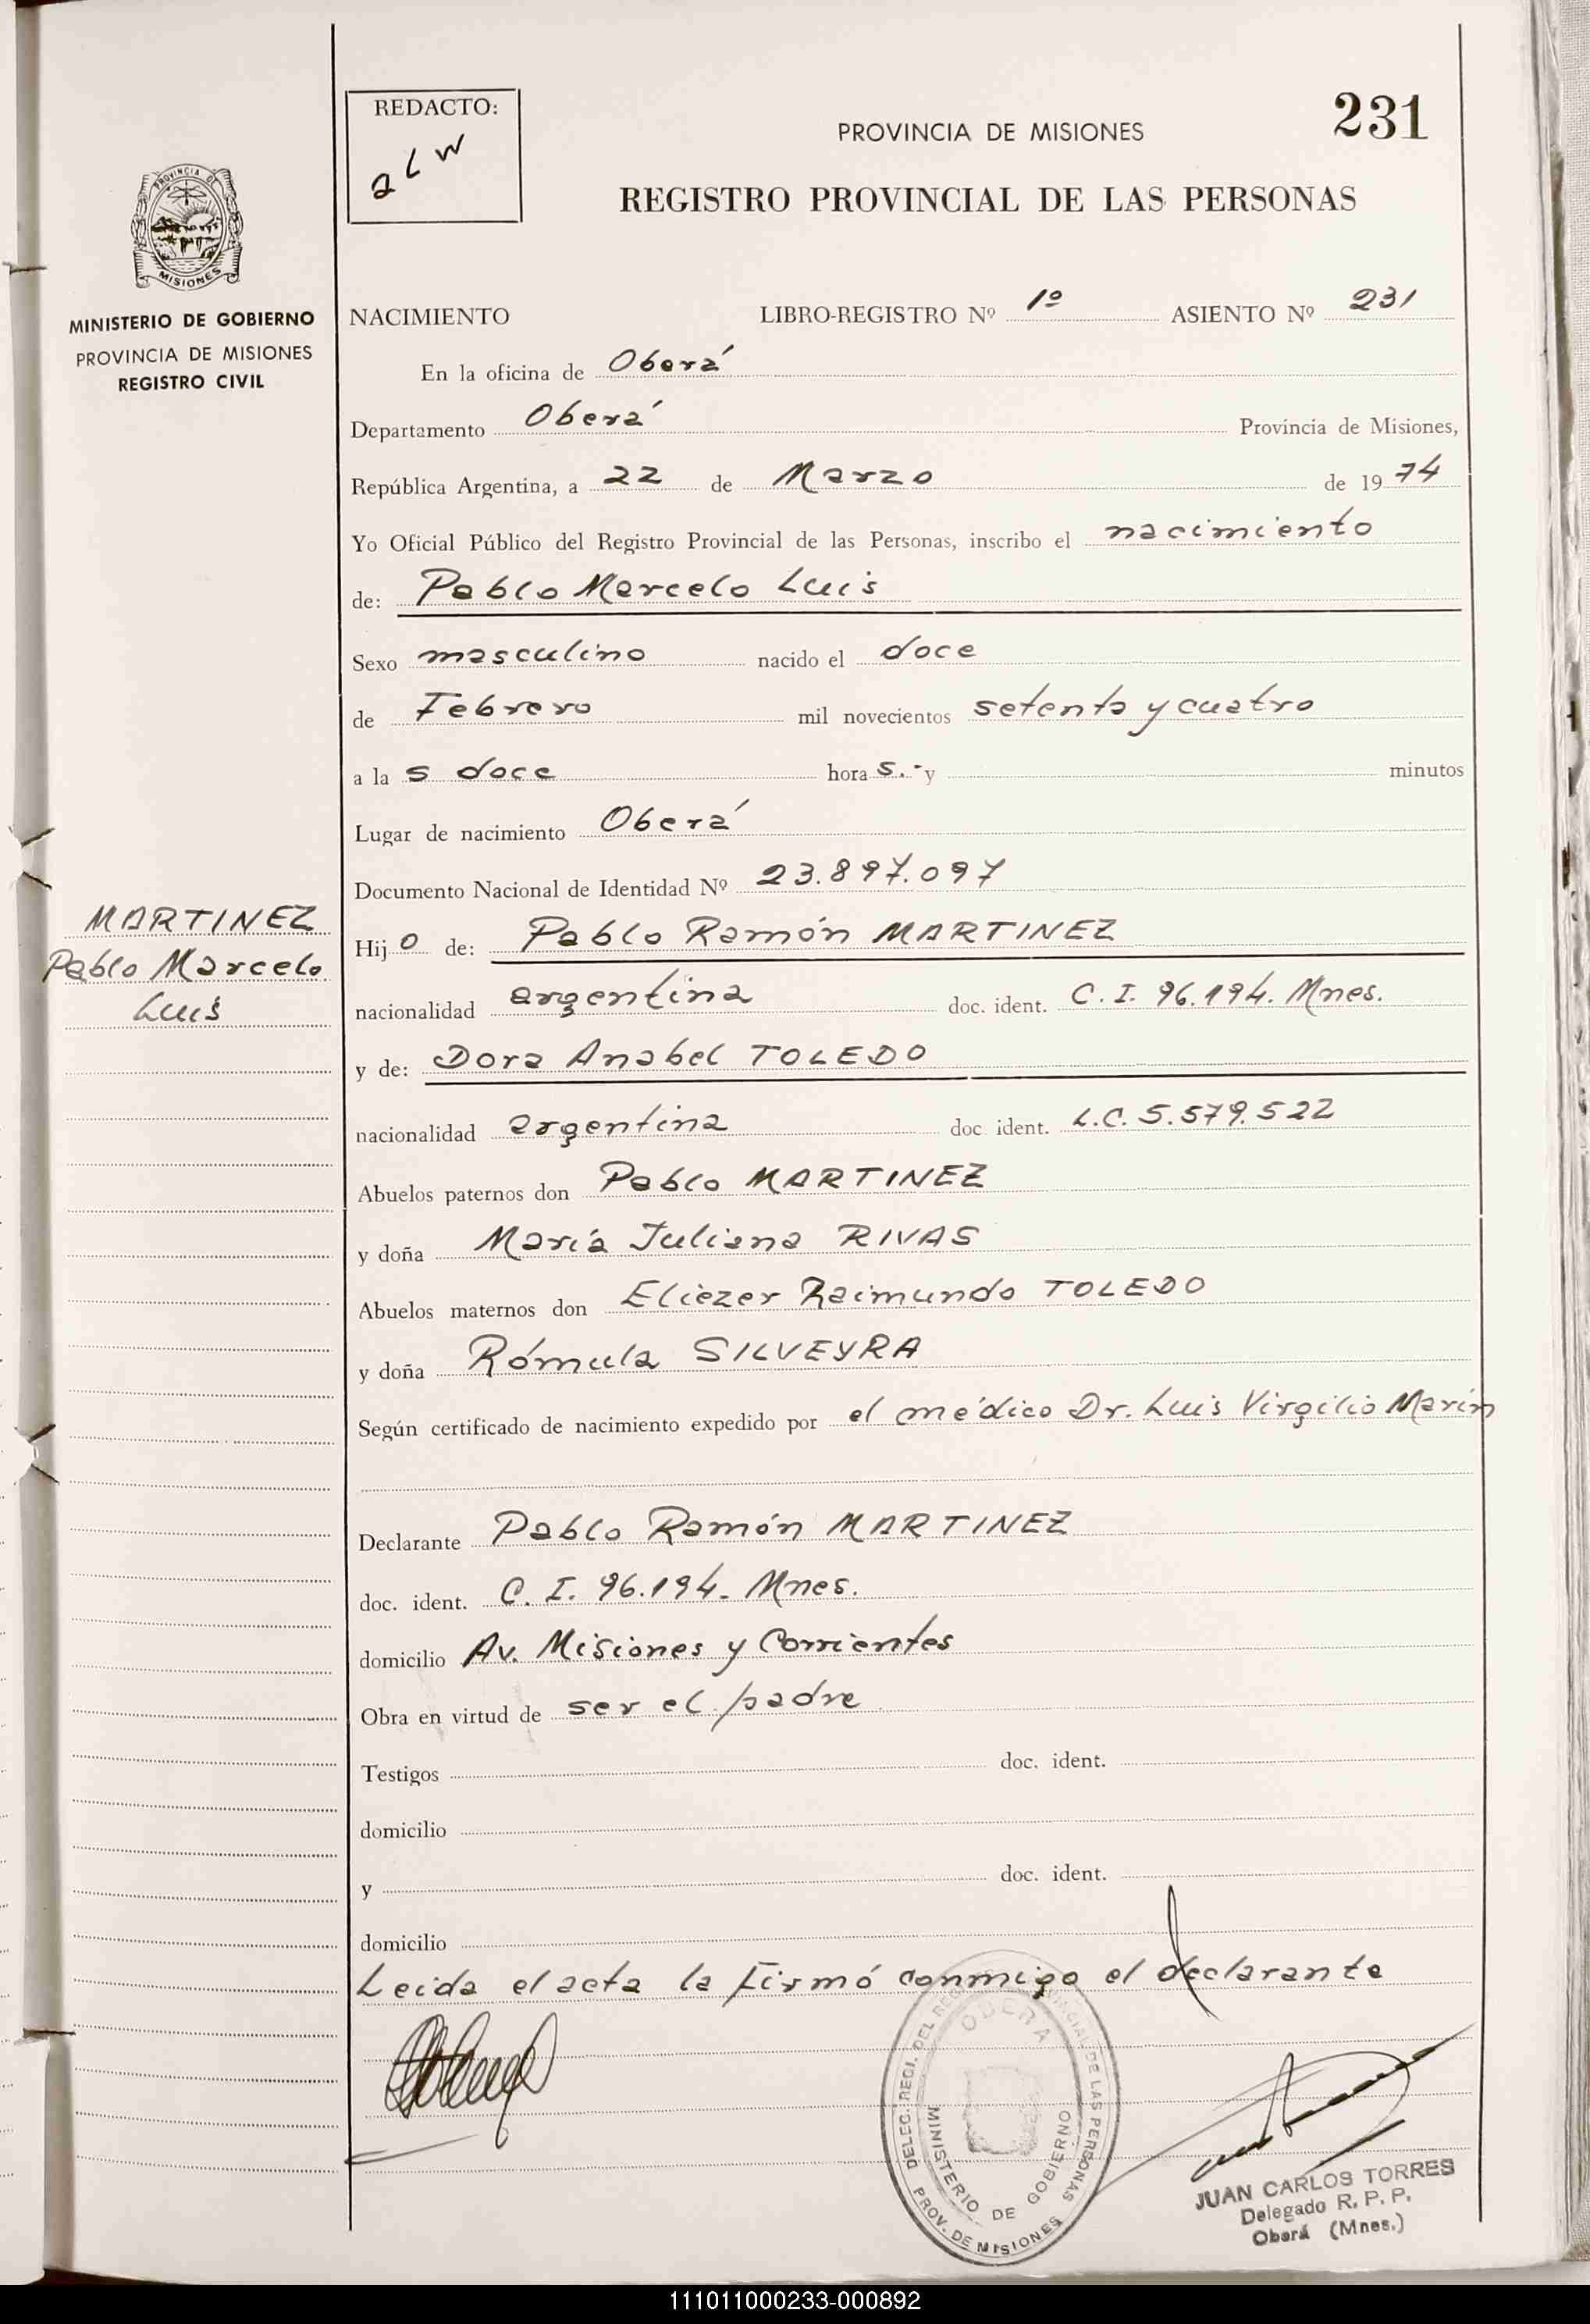 REDACTO:
alw
231
PROVINCIA DE MISIONES
REGISTRO PROVINCIAL DE LAS PERSONAS
PROVINCIA DE
MISIONES
MINISTERIO DE GOBIERNO
PROVINCIA DE MISIONES
REGISTRO CIVIL
NACIMIENTO LIBRO-REGISTRO Nº 1º ASIENTO Nº 231
En la oficina de Oberá
Departamento Oberá Provincia de Misiones,
República Argentina, a 22 de Marzo de 1974
Yo Oficial Público del Registro Provincial de las Personas, inscribo el nacimiento
de: Pablo Marcelo Luis
Sexo masculino nacido el doce
de Febrero mil novecientos setenta y cuatro
a la s doce hora s.- y minutos
Lugar de nacimiento Oberá
Documento Nacional de Identidad Nº 23.897.097
MARTINEZ
Pablo Marcelo
Luis
Hijo de: Pablo Ramón MARTINEZ
nacionalidad argentina doc. ident. C. I. 96.194. Mnes.
y de: Dora Anabel TOLEDO
nacionalidad argentina doc ident. L.C. 5.579.522
Abuelos paternos don Pablo MARTINEZ
y doña María Juliana RIVAS
Abuelos maternos don Eliezer Raimundo TOLEDO
y doña Rómula SILVEYRA
Según certificado de nacimiento expedido por el médico Dr. Luis Virgilio Marín
Declarante Pablo Ramón MARTINEZ
doc. ident. C. I. 96.194. Mnes.
domicilio Av. Misiones y Corrientes
Obra en virtud de ser el padre
Testigos doc. ident.
domicilio
y doc. ident.
domicilio
Leida el acta la firmó conmigo el declarante
DELEC. REGI. DEL REGISTRO PROVINCIAL DE LAS PERSONAS
OBERA
MINISTERIO DE GOBIERNO
PROV. DE MISIONES
JUAN CARLOS TORRES
Delegado R. P. P.
Oberá (Mnes.)
111011000233-000892